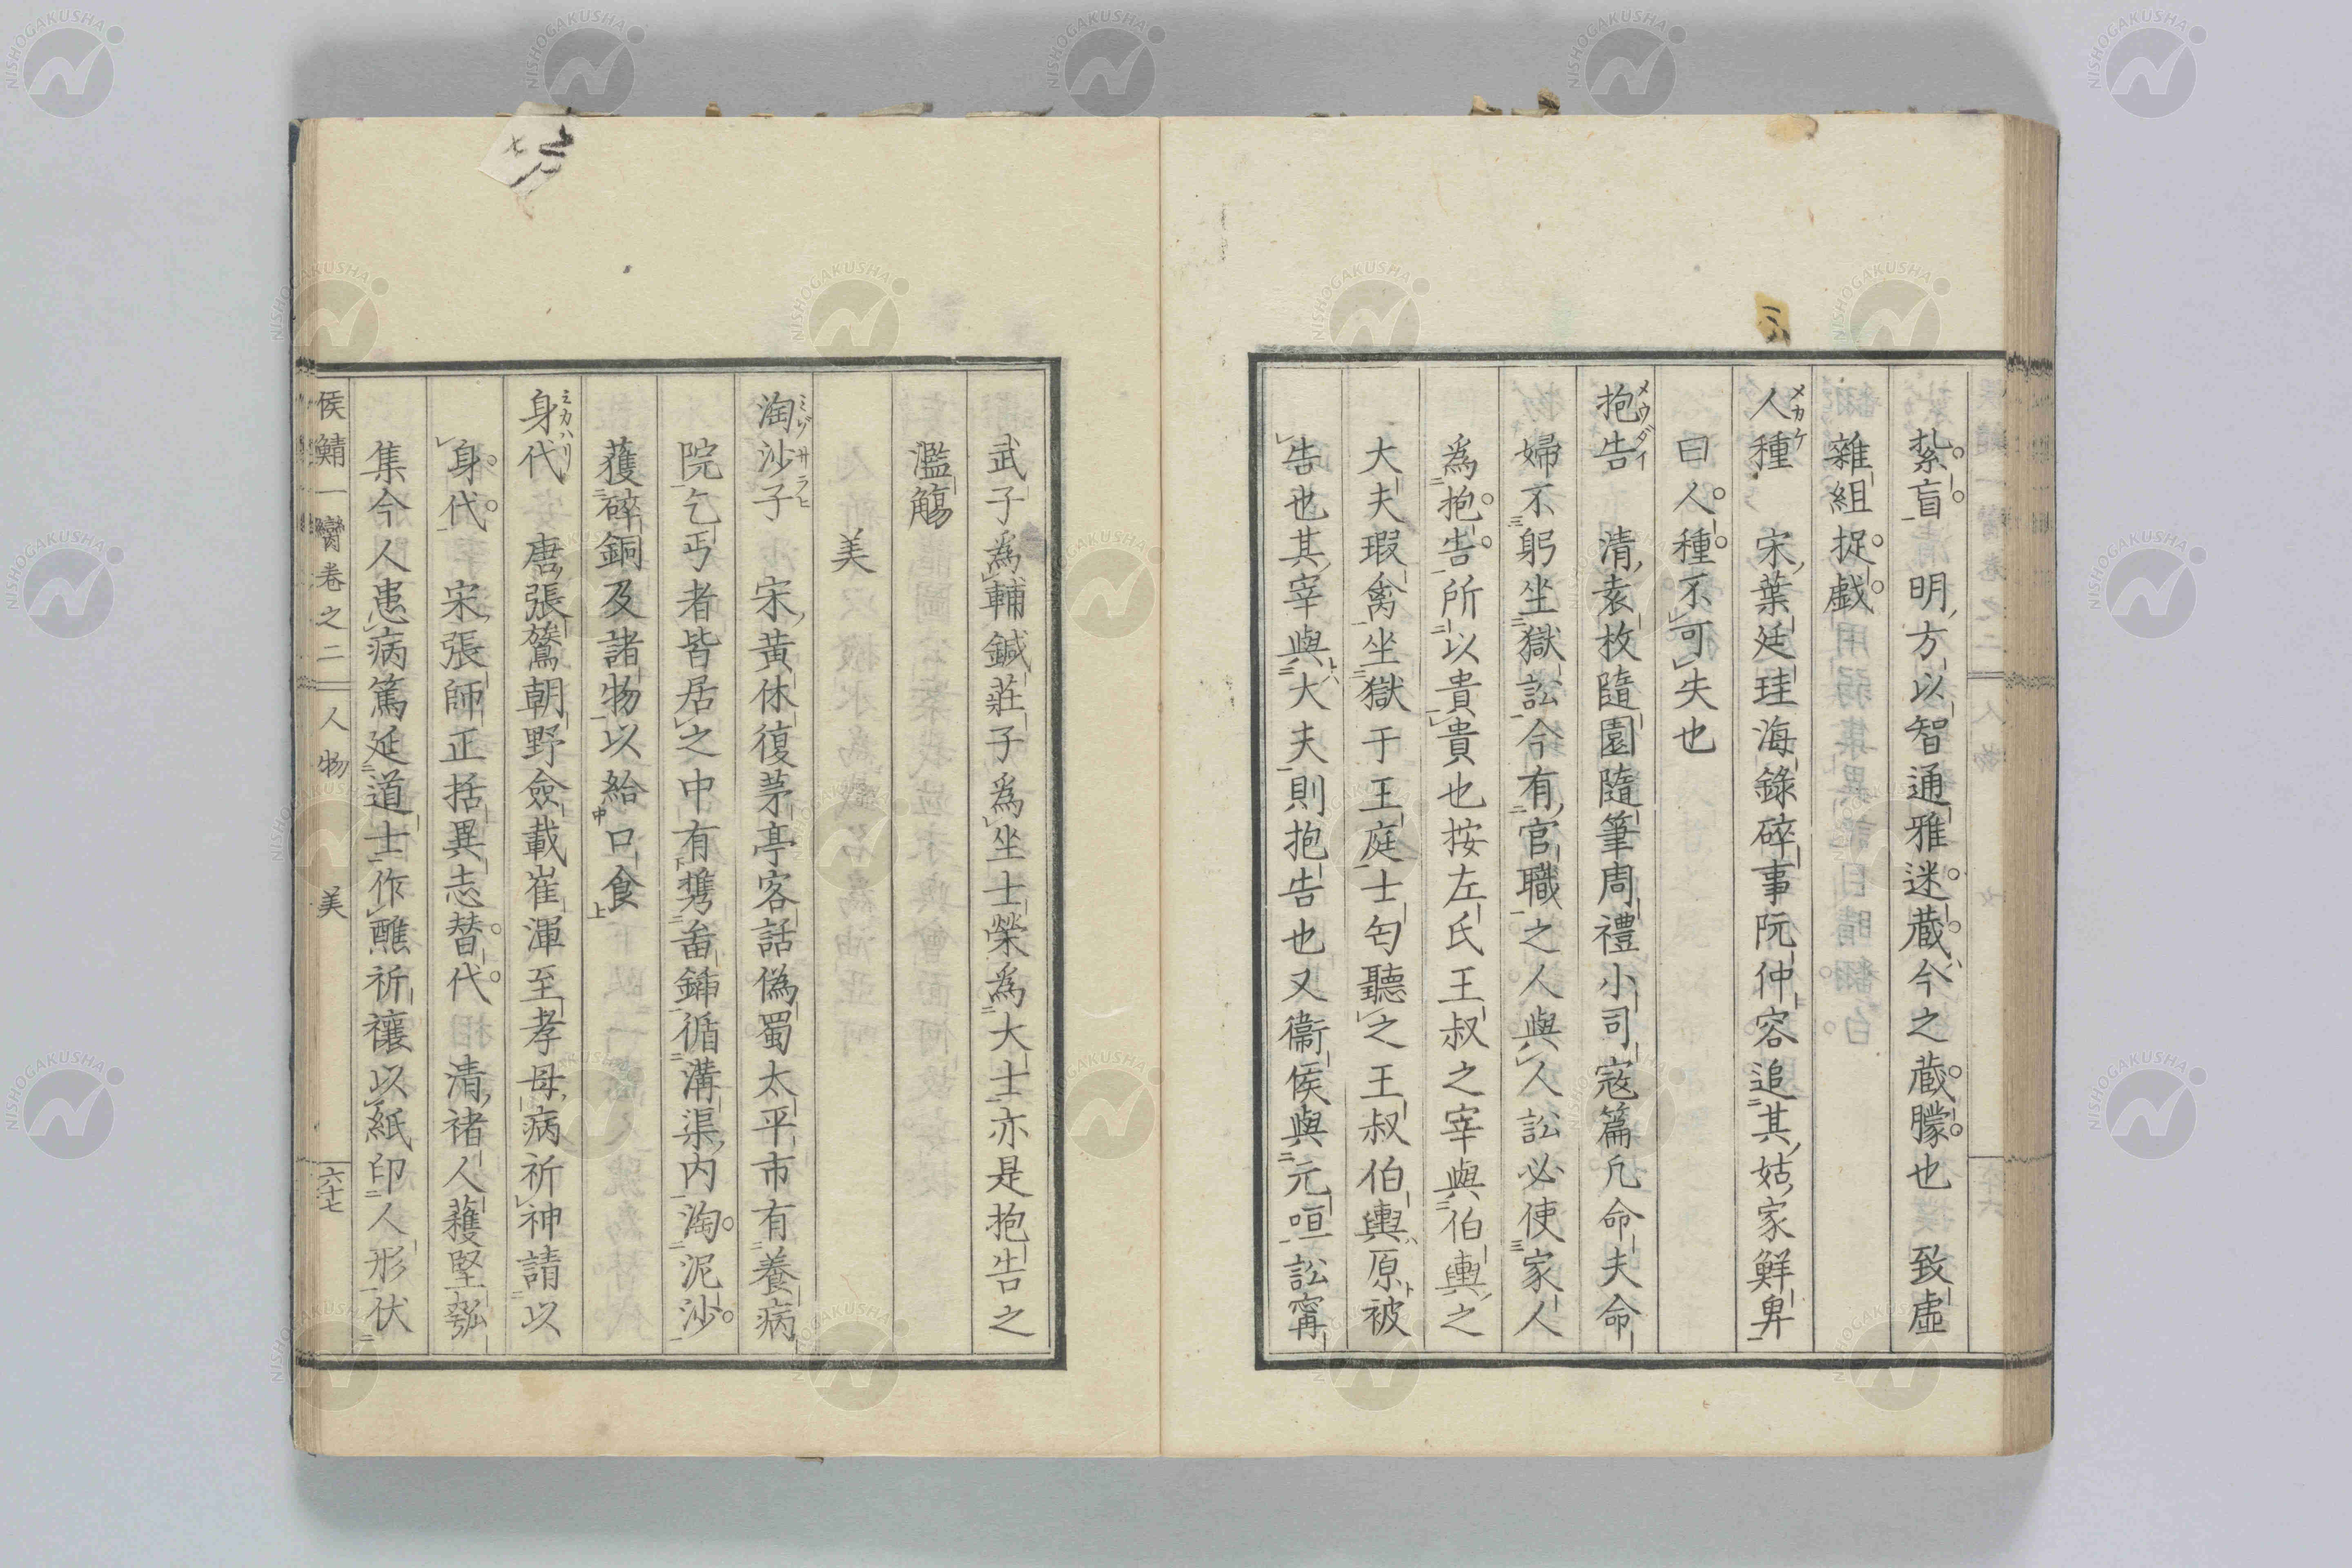 紮盲　明方以智通雅迷蔵今之蔵朦也　致虛
雜組捉戯
人種　宋葉廷珪海錄碎事阮仲容追其姑家鮮卑
メカケ
曰人種不可失也
抱告　清袁枚隨園隨筆周禮小司寇篇凡命夫命
メウダイ
婦不躬坐獄訟今有官職之人與人訟必使家人
為抱告所以貴貴也按左氏王叔之宰與伯輿之
大夫瑕禽坐獄于王庭士匄聽之王叔伯輿原被
告也其宰與大夫則抱告也又衞侯與元咺訟甯
武子為輔鍼莊子為坐士榮為大士亦是抱告之
濫觴
美
淘沙子　宋黃休復茅亭客話偽蜀太平市有養病
ミゾサラヒ
院乞丐者皆居之中有攜畚鍤循溝渠內淘泥沙
獲碎銅及諸物以給口食
身代　唐張鷟朝野僉載崔渾至孝母病祈神請以
ミカハリ
身代　宋張師正括異志替代　清褚人穫堅瓠
集今人患病篤延道士作醮祈禳以紙印人形伏
侯鯖一臠卷之二　人物　美　六十七
NISHOGAKUSHA